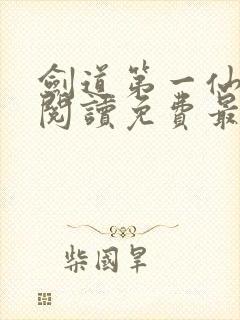 劍道第一仙
閱讀免費最
柴國旱